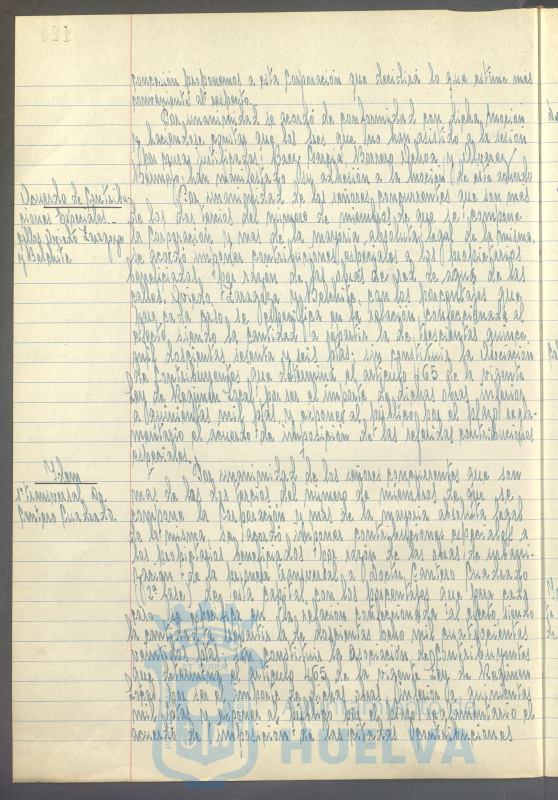 concesión proponemos a esta Corporación que decidirá lo que estime mas
conveniente al respecto.
Por unanimidad se acordó de conformidad con dicha moción
y haciendose constar que los tres que no han asistido a la sesión
por causa justificada: Baez Barrero y Alvarez
Bermejo han manifestado su adhesión a la moción de este acuerdo
Acuerdo de Contribu-
ciones Especiales
calles Oviedo Zaragoza
y Belchite.
Por unanimidad de los señores concurrentes que son mas
de los dos tercios del numero de miembros de que se compone
la Corporación y mas de la mayoria absoluta legal de la misma,
se acordó imponer contribuciones especiales a los propietarios
beneficiados por razón de las obras de red de agua de las
calles, Oviedo Zaragoza y Belchite, con los porcentajes que
para cada caso se especifica en la relación confeccionada al
efecto, siendo la cantidad a repartir la de trescientas quince
mil doscientas setenta y seis ptas: sin constituir la Asociación
de Contribuyentes que determina el articulo 465 de la vigente
Ley de Régimen Local por ser el importe de dichas obras inferior
a quinientas mil ptas y exponer al publico por el plazo regla-
mentario el acuerdo de imposición de las referidas contribuciones
especiales.
Idem
1ª transversal
Cantero Cuadrado.
Por unanimidad de los señores concurrentes que son
mas de los dos tercios del numero de miembros de que se
compone la Corporación y mas de la mayoria absoluta legal
de la misma, se acordó imponer contribuciones especiales a
los propietarios beneficiados por razón de las obras de urbani-
zación de la primera transversal a Doctor Cantero Cuadrado
(2ª fase) de esta capital, con los porcentajes que para cada
caso se especifica en la relación confeccionada al efecto siendo
la cantidad a repartir la de doscientas ocho mil cuatrocientas
ptas. sin constituir la asociación de Contribuyentes
que determina el articulo 465 de la vigente Ley de Régimen
Local por ser el importe de dichas obras inferior a quinientas
mil ptas y exponer al publico por el plazo reglamentario el
acuerdo de imposición de las citadas contribuciones
Ayuntamiento de
HUELVA